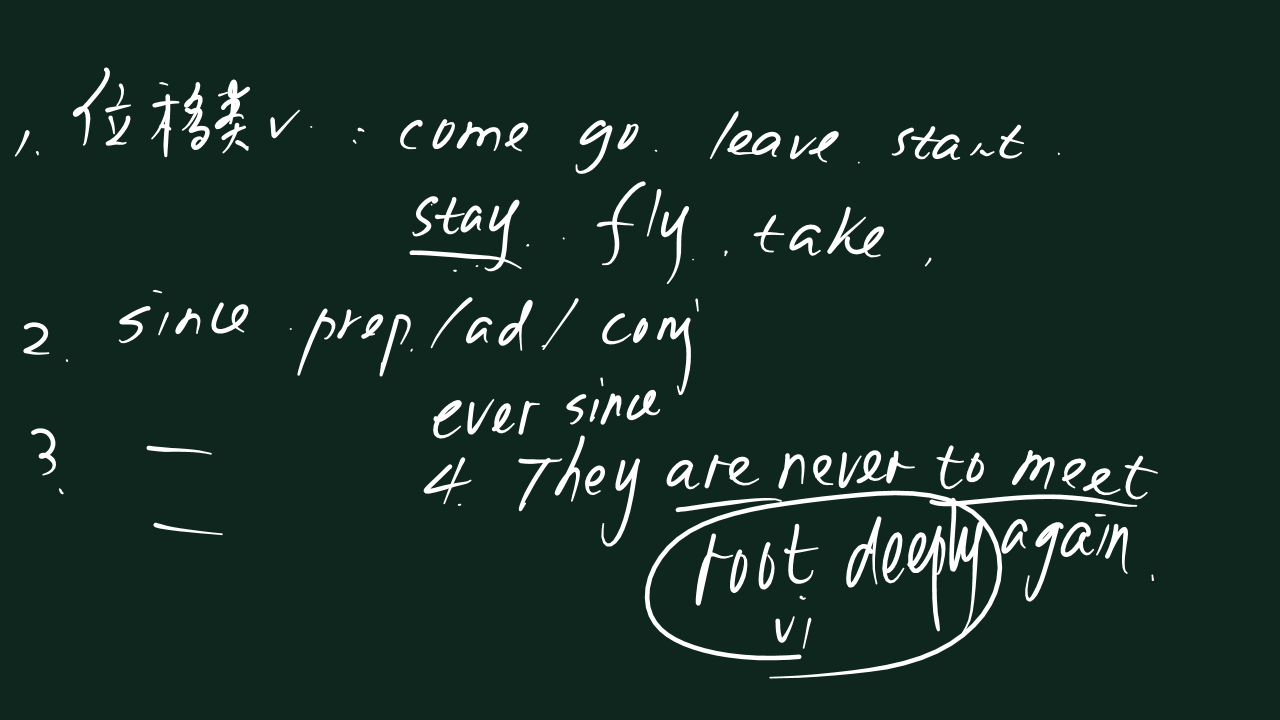 1. 位移类v. : come go. leave. start.
stay. fly. take,
2. since prep./ad/conj
ever since
3.
4. They are never to meet
again.
root deeply
vi